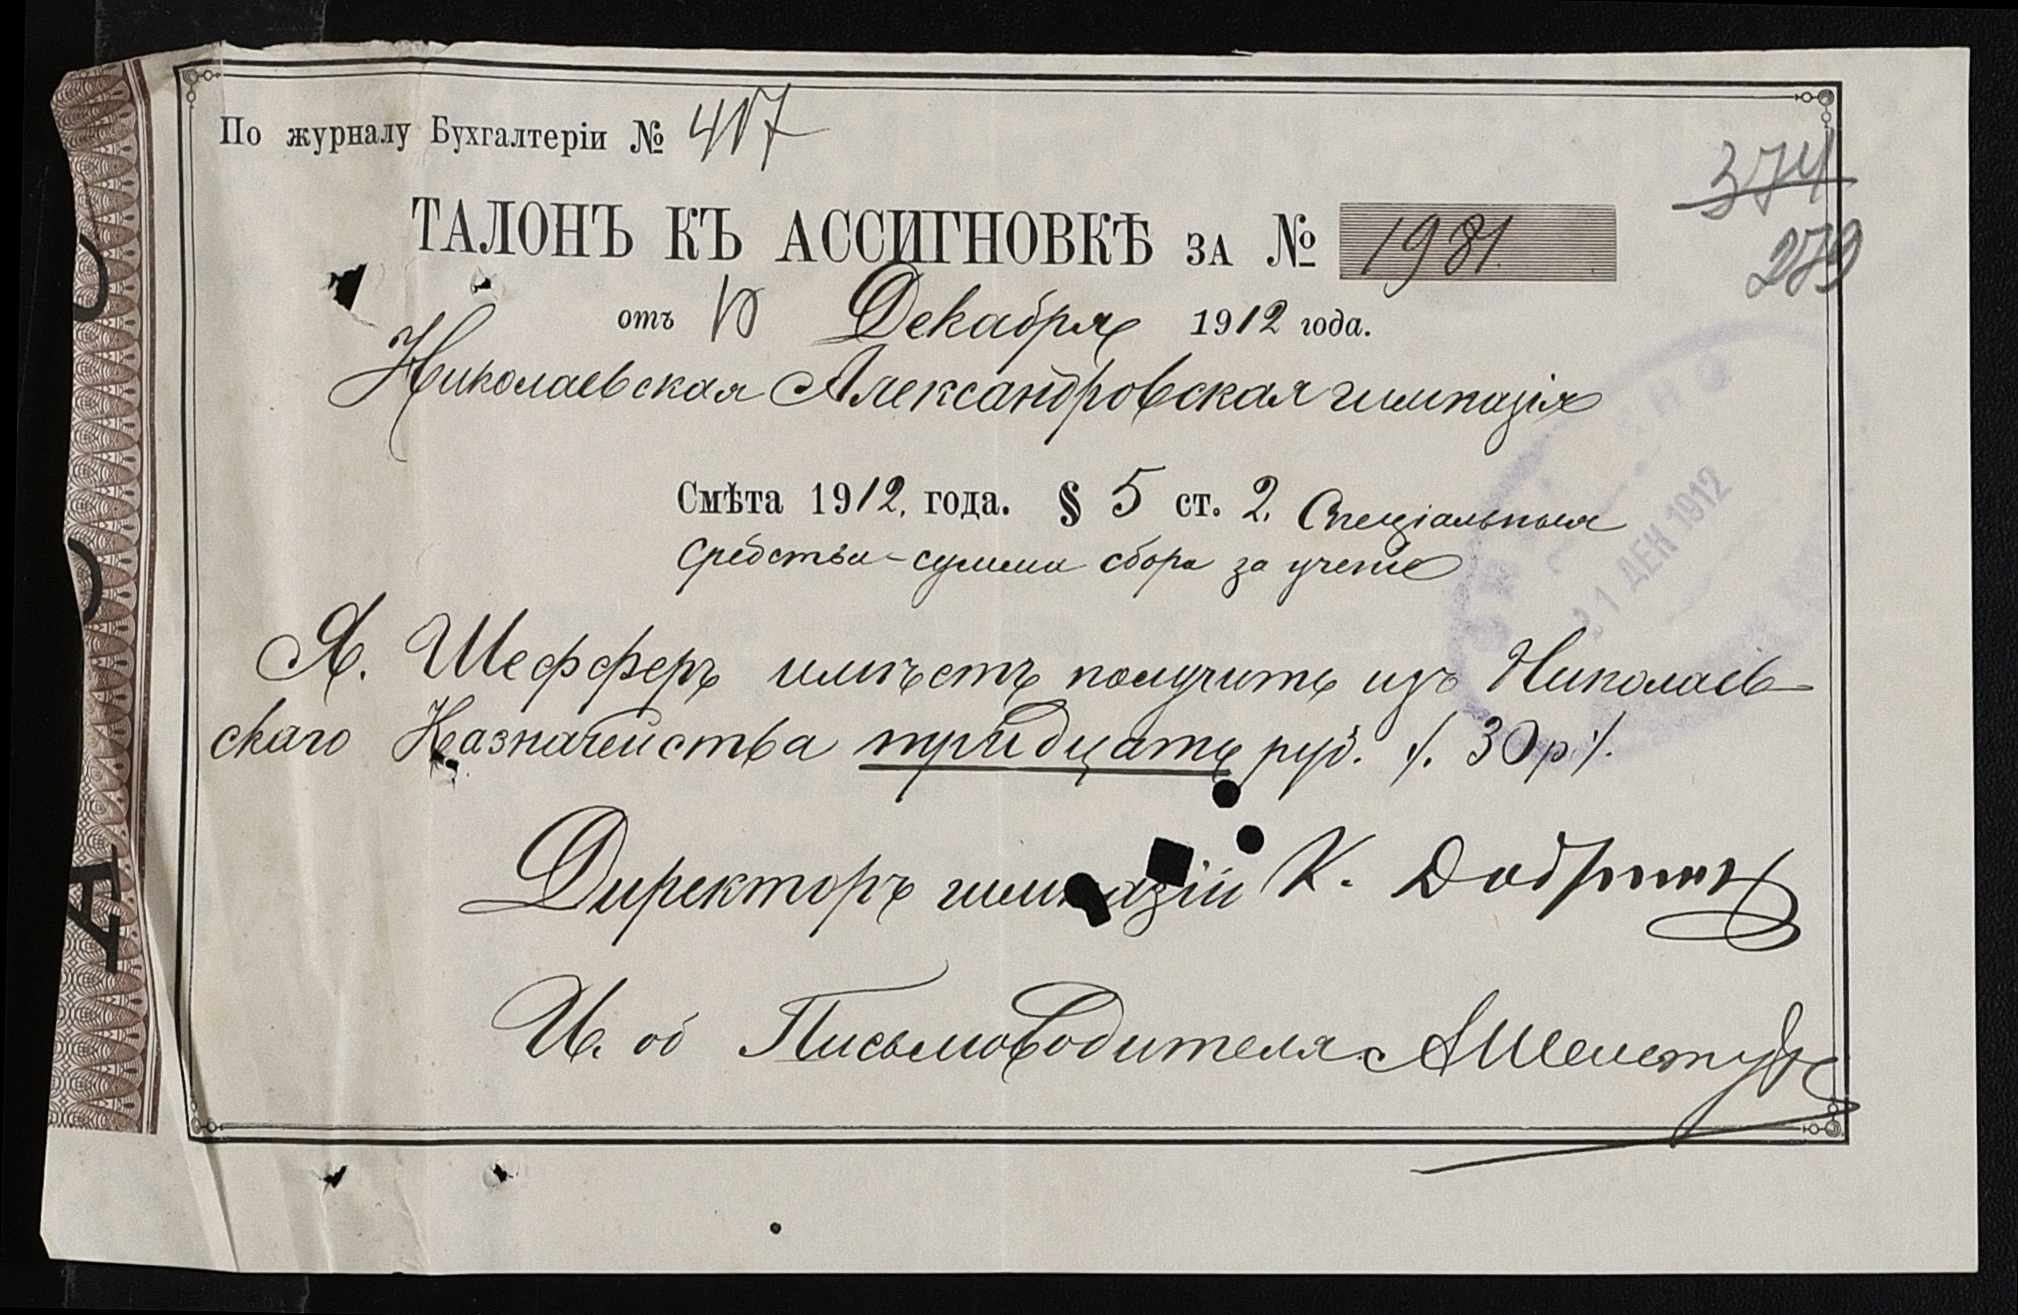 По журналу Бухгалтеріи № 417
374
ТАЛОНЪ КЪ АССИГНОВКѢ ЗА № 1981.
279
отъ 10 Декабря 1912 года.
Николаевская Александровская гимназія
Смѣта 1912, года. § 5 ст. 2, Спеціальныя
средства - суммы сбора за ученіе
21 ДЕК 1912
Я. Шефферъ имѣетъ получить изъ Николаев-
скаго Казначейства тридцать руб. /. 30 р /.
Директоръ гимназіи К.
И. об Письмоводителя А